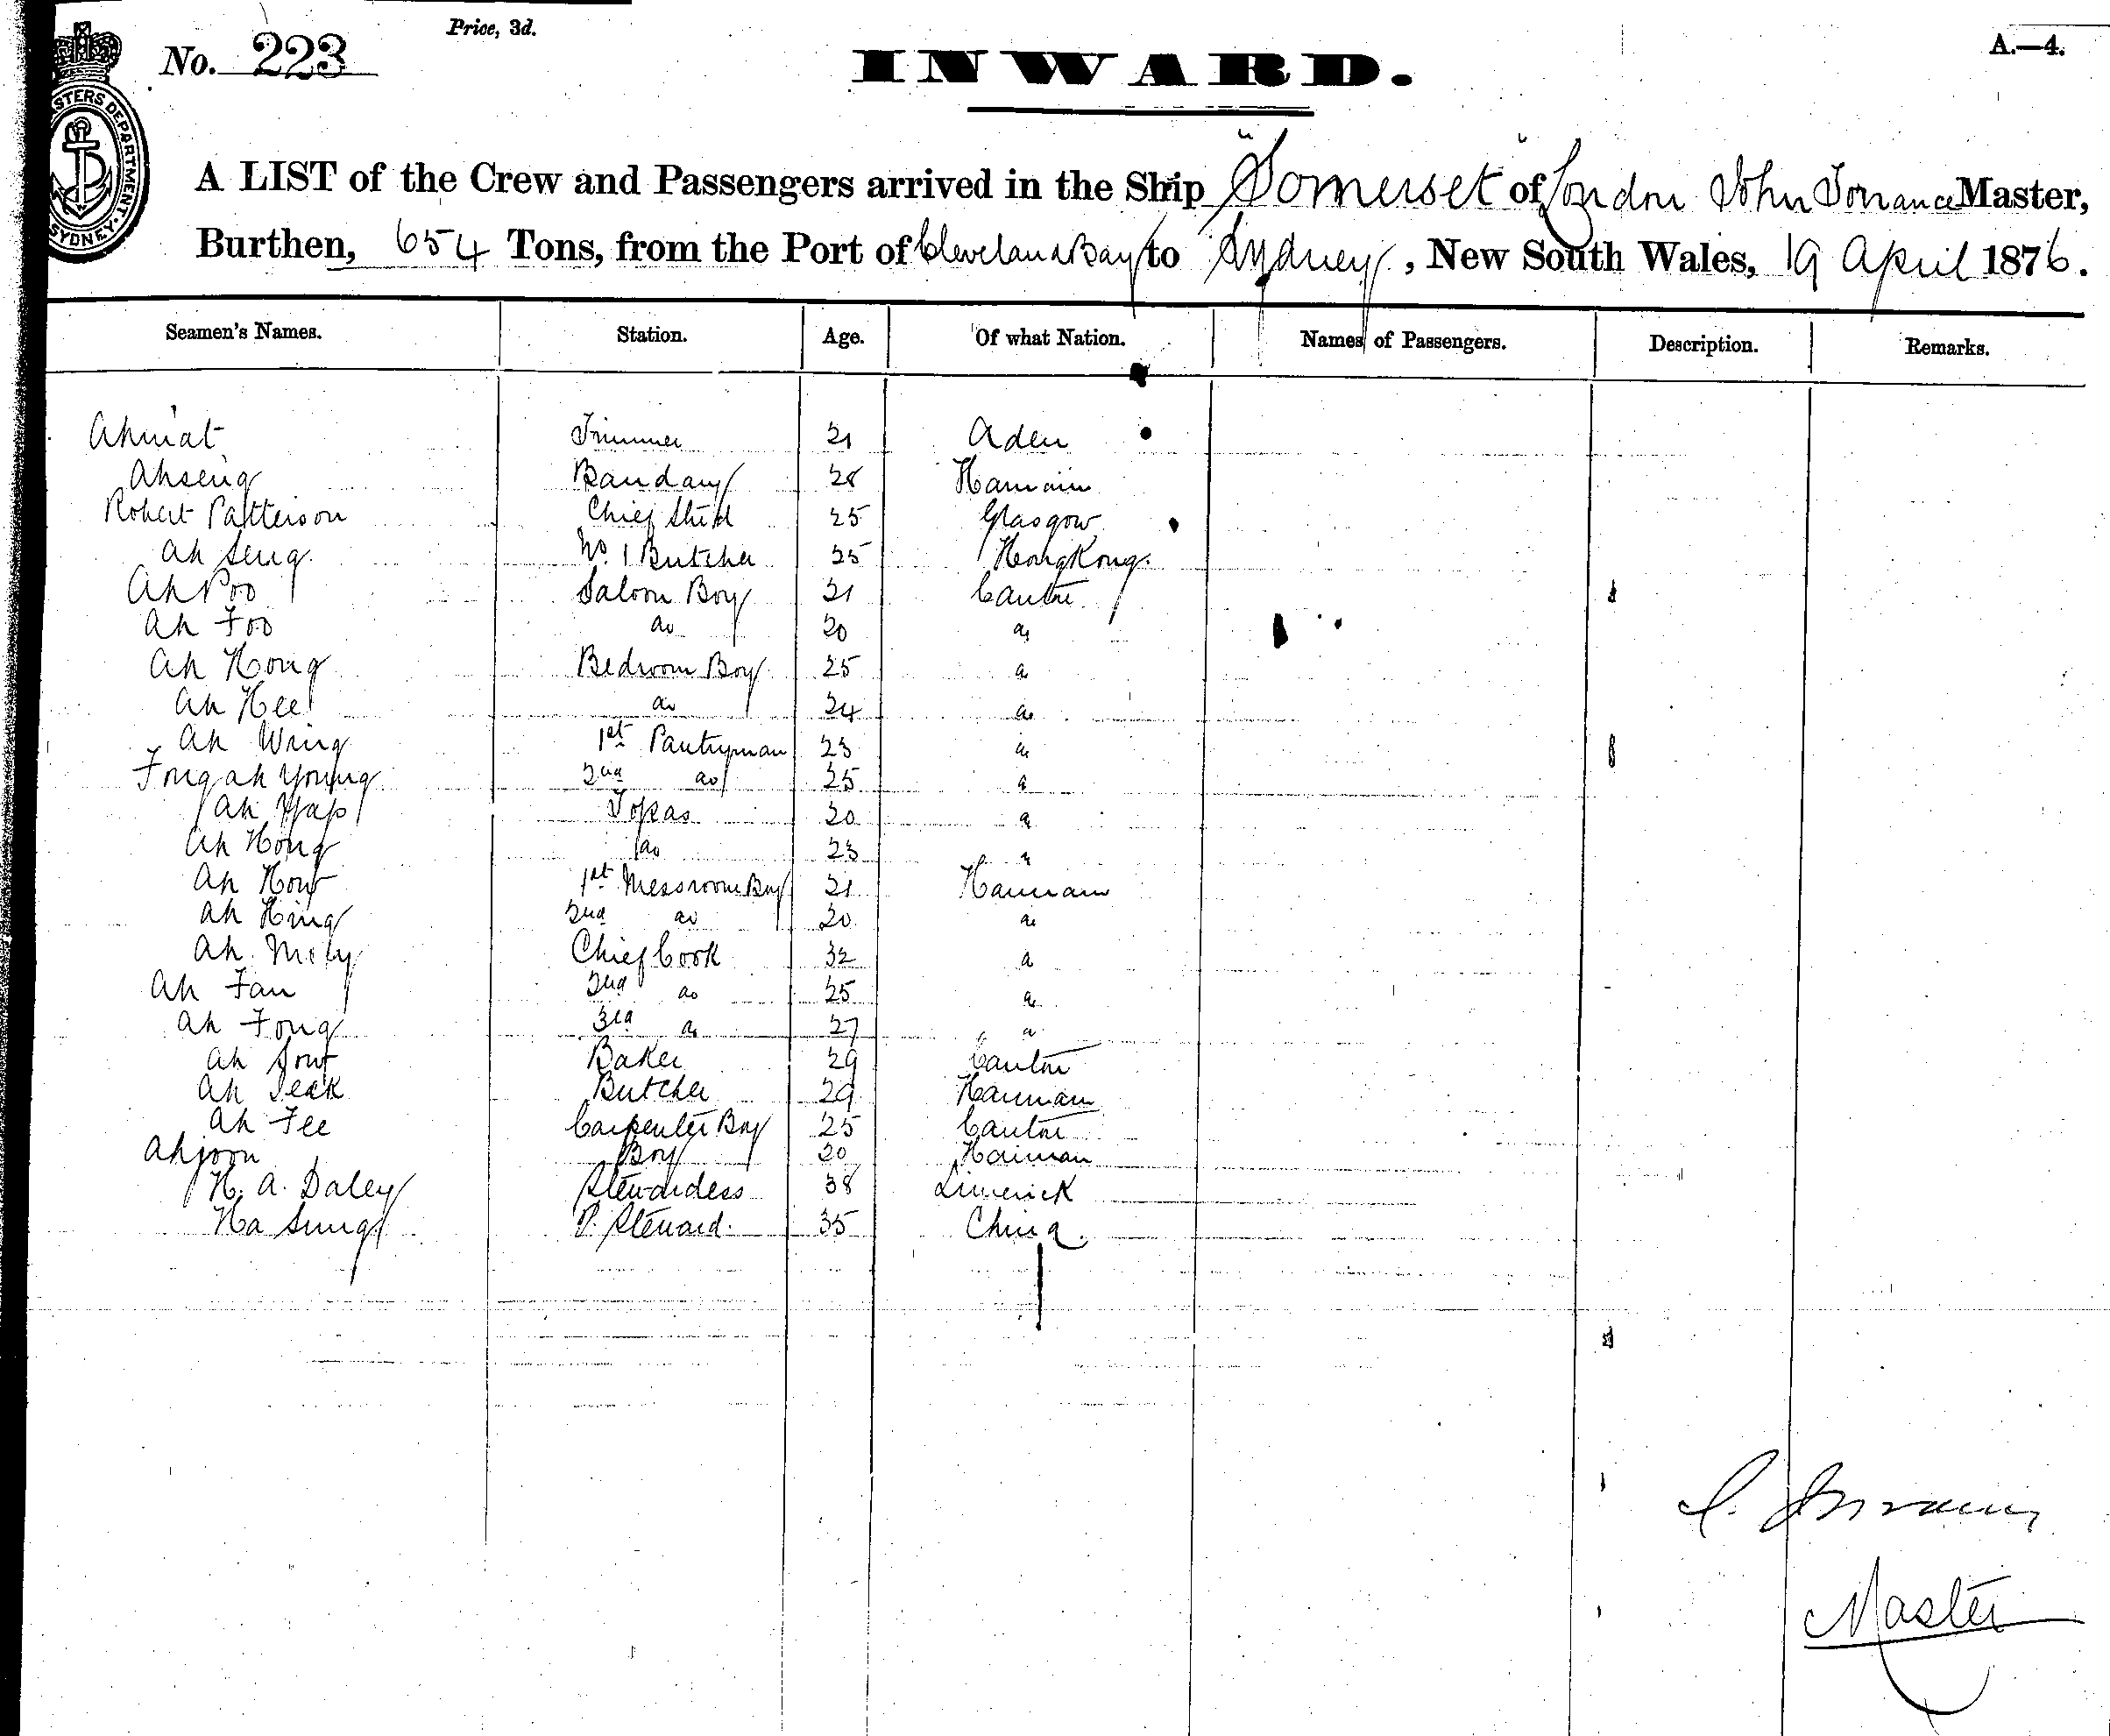 No. 223
Price, 3d.
INWARD.
A.—4.
STERS DEPARTMENT. SYDNEY.
A LIST of the Crew and Passengers arrived in the Ship "Somerset" of London John Torrance Master,
Burthen, 654 Tons, from the Port of Cleveland Bay to Sydney, New South Wales, 19 April 1876.
Seamen's Names. Station. Age. Of what Nation. Names of Passengers. Description. Remarks.
Ahmat Trimmer 21 Aden
Ahseng 28
Robert Patterson Chief Std 25 Glasgow
Ah Seng. No. 1 Butcher 25 HongKong.
Ah Poo Saloon Boy 21 Canton
Ah Foo do 20 do
Ah Hong Bedroom Boy 25 do
Ah Hee do 24 do
Ah Wing 1st Pantryman 23 do
Fong ah Young 2nd do 25 do
Ah Yap Topas 20 do
Ah Hong do 23 do
Ah How 1st Messroom Boy 21 Hainam
Ah Hing 2nd do 20 do
Ah Chief Cook 32 do
Ah Fan 2nd do 25 do
Ah Fong 3rd do 27 do
Ah Sow Baker 29 Canton
Ah Teak Butcher 29 Hainam
Ah Fee Carpenter Boy 25 Canton
Ahjoon Boy 20 Hainan
H. A. Daley Stewardess 38 Limerick
Ha Sung P. Steward. 35 China.
J. Torrance
Master